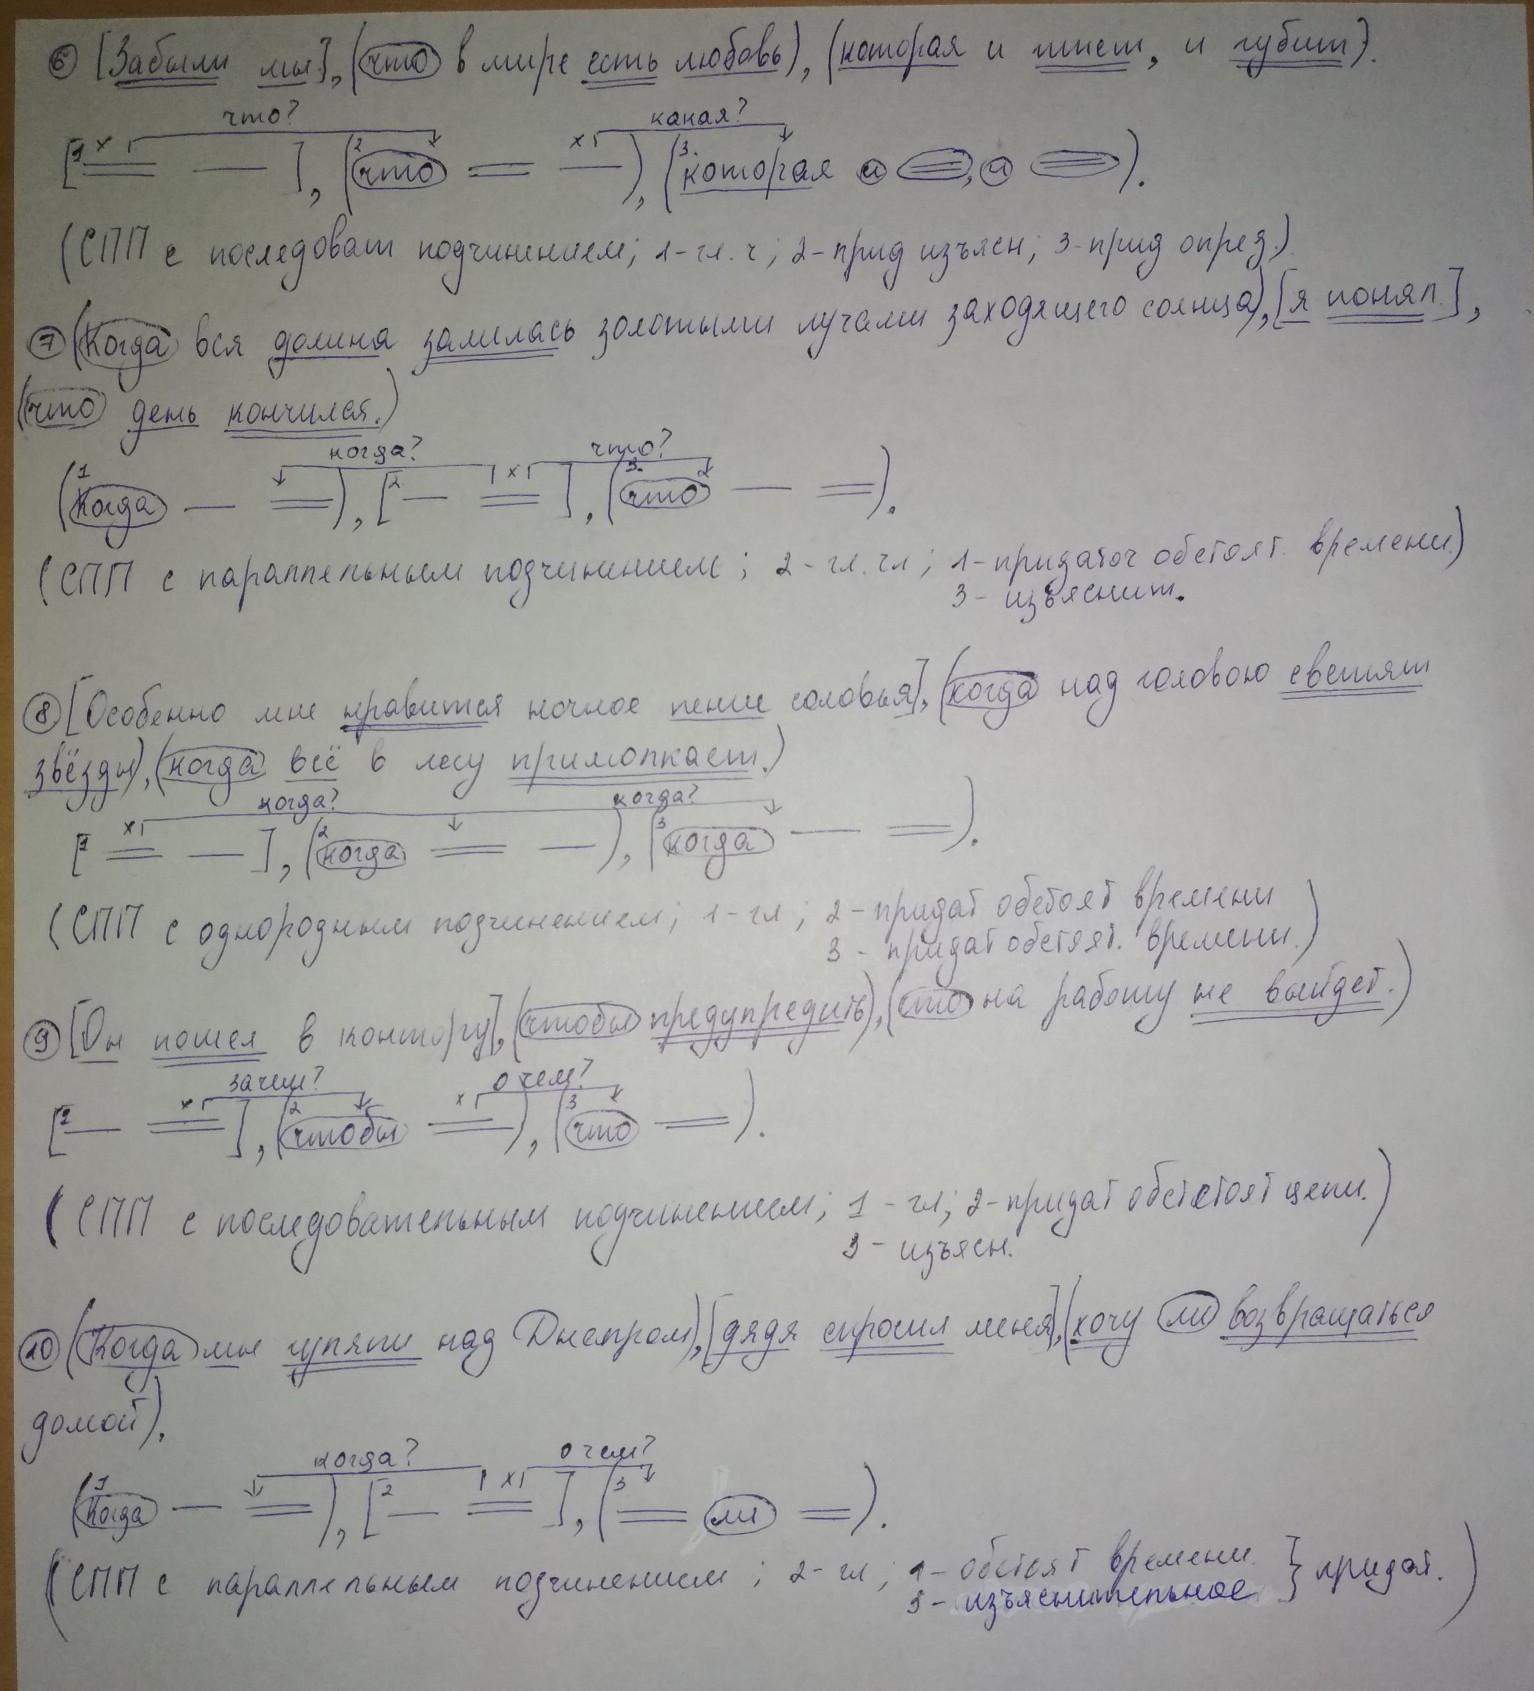 ⑥ [Забыли мы], (что в мире есть любовь), (которая и , и губит).
что? какая?
[1 х ], (2 что х ), (3. которая и , и ).
(СПП с последоват подчинением; 1-гл. ч; 2-прид изъясн; 3-прид опред.)
⑦ (Когда вся долина залилась золотыми лучами заходящего солнца), [я понял.],
(что день кончился.)
когда? что?
(1 Когда ), [2 х ], (3. что ).
(СПП с параллельным подчинением; 2-гл. чл; 1-придаточ обстоят. времени.)
3- изъяснит.
⑧ [Особенно мне нравится ночное пение соловья], (когда над головою светят
звёзды), (когда всё в лесу примолкает.)
когда? когда?
[1 х ], (2 когда ), (3 когда ).
(СПП с однородным подчинением; 1-гл; 2-придат обстоят времени
3 - придат обстоят. времени.)
⑨ [Он пошел в контору], (чтобы предупредить), (что на работу не выйдет.)
зачем? о чем?
[1 х ], (2 чтобы х ), (3 что ).
(СПП с последовательным подчинением; 1 - гл; 2-придат обстстоят цели.)
3 - изъясн.
⑩ (Когда мы гуляли над Днепром), [дядя спросил меня], (хочу ли возвращаться
домой).
когда? о чем?
(1 Когда ), [2 х ], (3 ли ).
(СПП с параллельным подчинением; 2-гл; 1-обстоят времени. } придат.)
3- изъяснительное